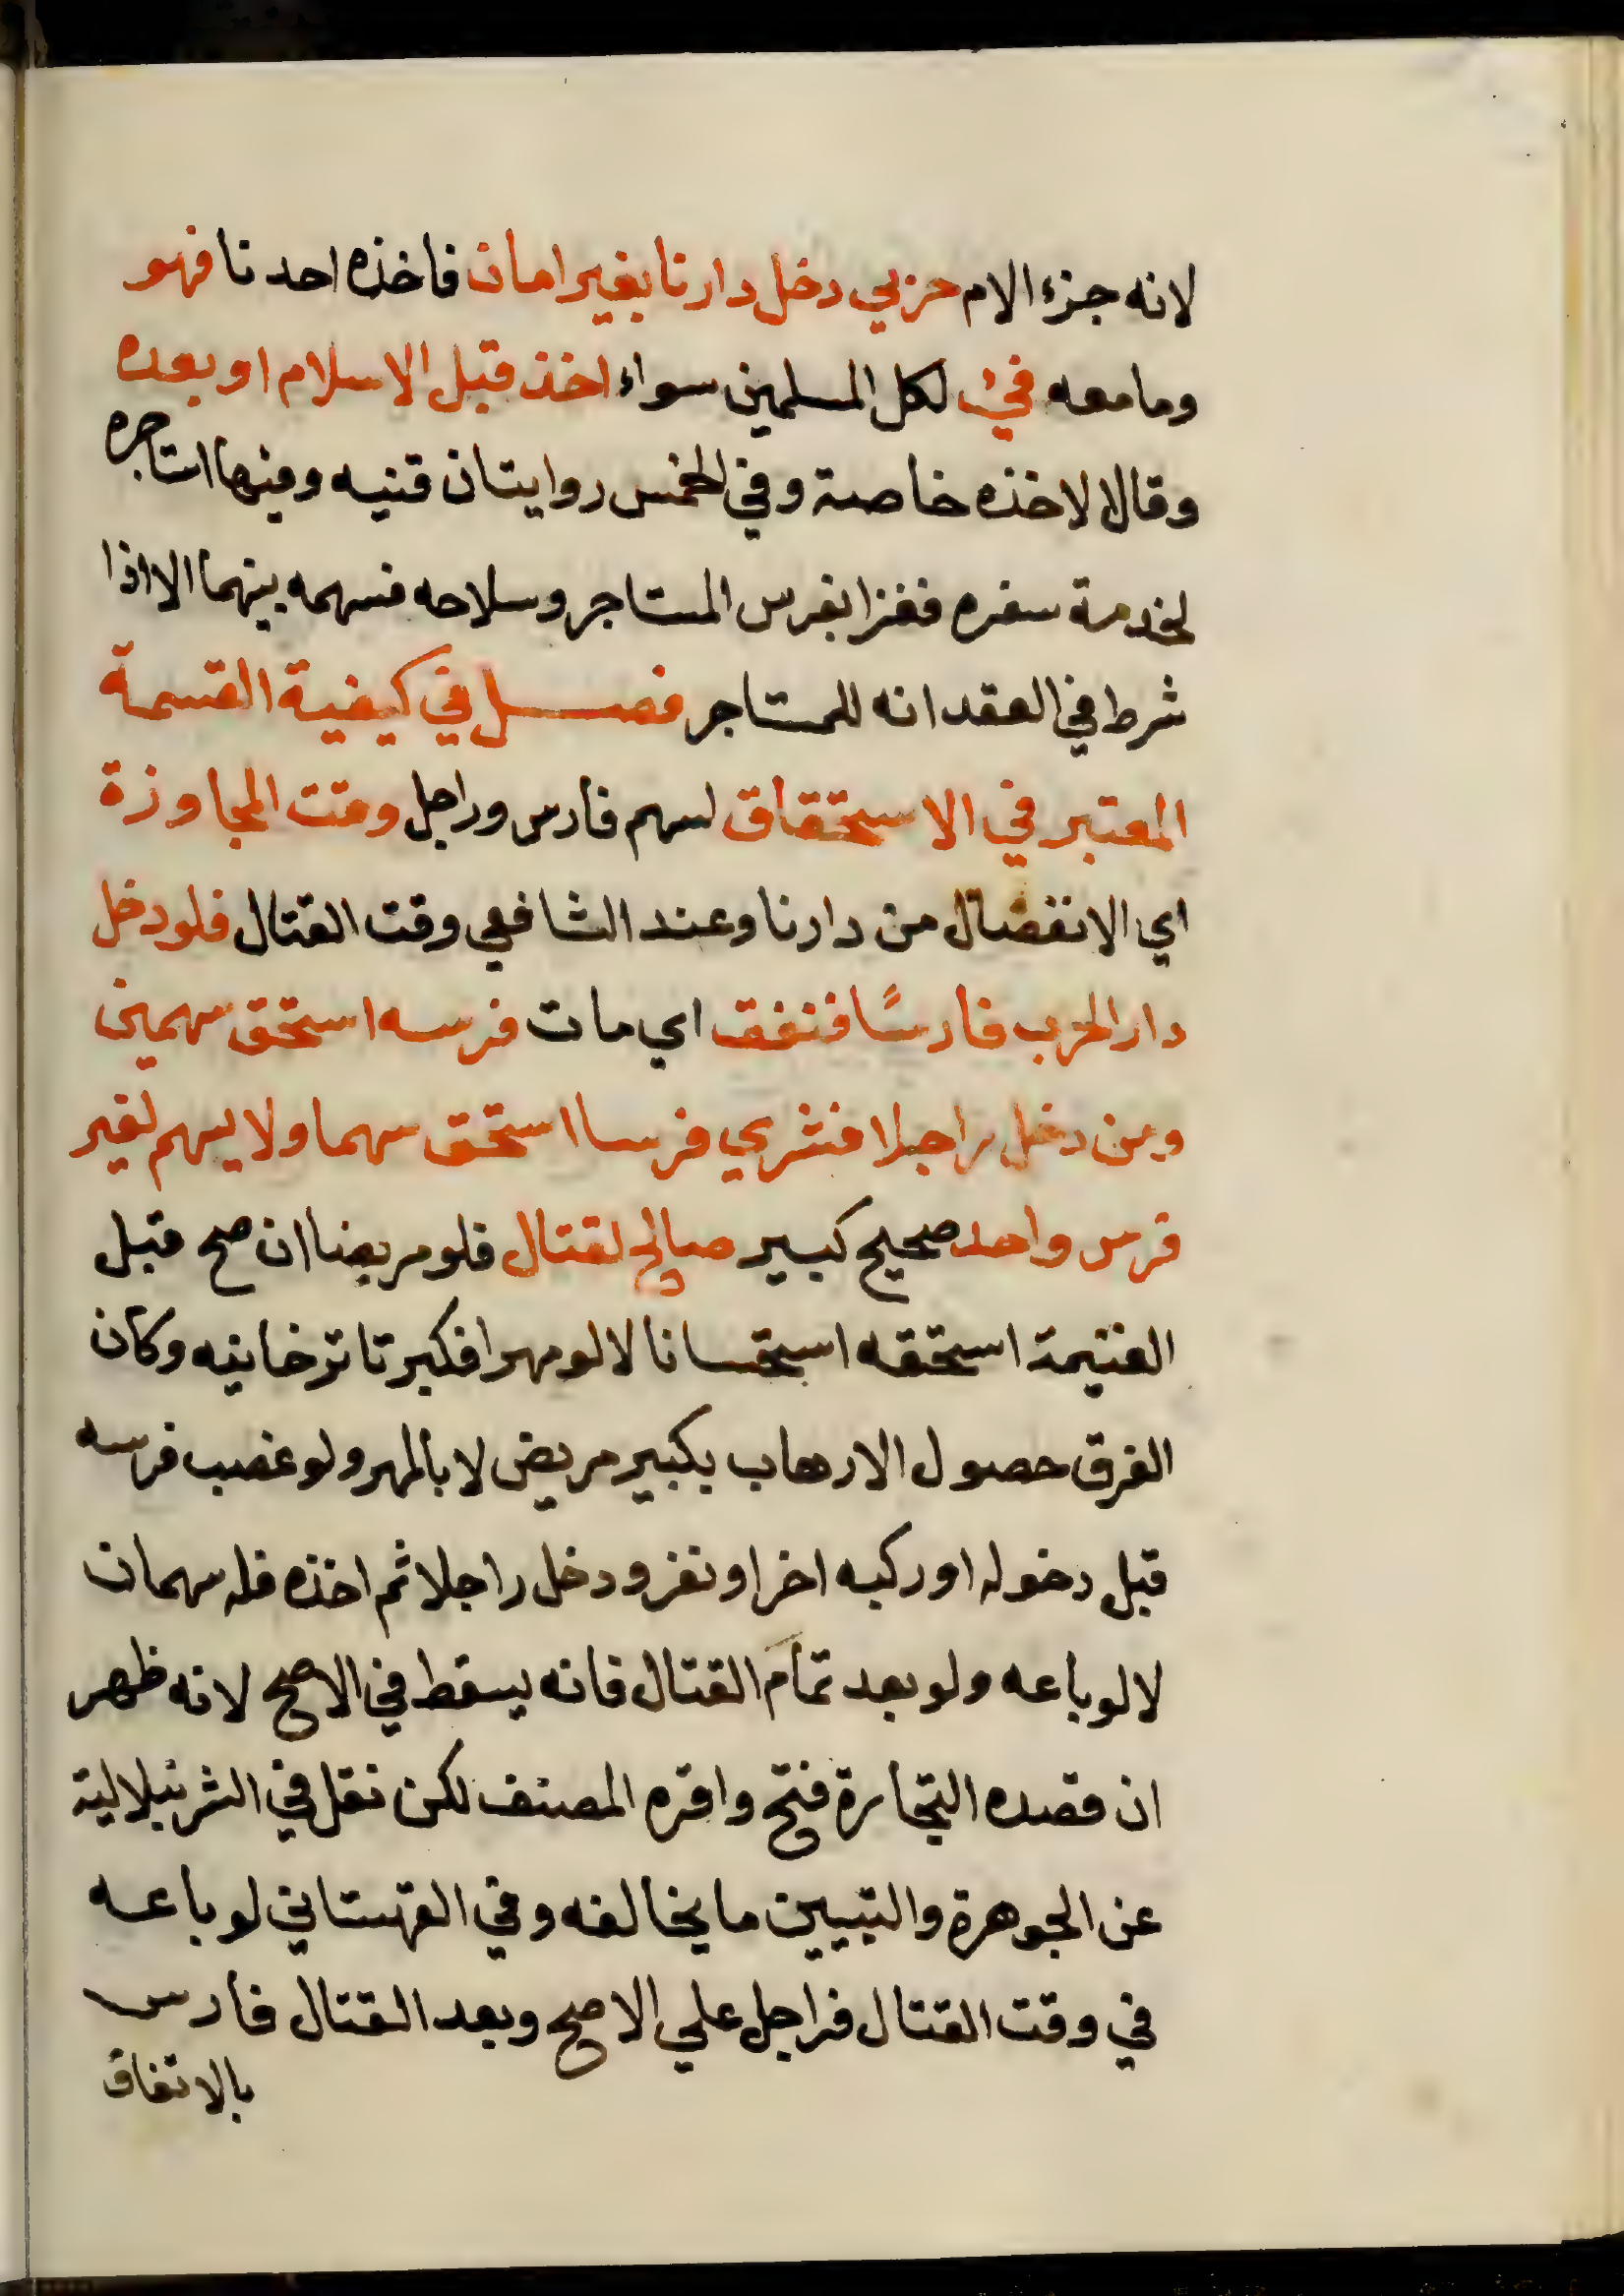 لانه جزء الام حربي دخل دارنا بغير امان فاخذه احدنا فهو
ومامعه فئ لكل المسلمين سواء اخذ قبل الاسلام او بعده
وقالا لاخذه خاصة وفي الخمس روايتان قنيه وفيها استاجره
لخدمة سفره فغزا بفرس المستاجر وسلاحه فسهمه بينهما الا اذا
شرط في العقد انه للمستاجر فصل في كيفية القسمة
المعتبر في الاستحقاق لسهم فارس وراجل وقت المجاوزة
اي الانفصال من دارنا وعند الشافعي وقت القتال فلو دخل
دار الحرب فارسًا فنفق اي مات فرسه استحق سهمين
ومن دخل راجلا فشري فرسا استحق سهما ولا يسهم لغير
فرس واحد صحيح كبير صالح لقتال فلو مريضا ان صح قبل
الغنيمة استحقه استحسانا لا لو مهرا فكبر تاترخانيه وكان
الفرق حصول الارهاب بكبير مريض لا بالمهر ولو غصب فرسه
قبل دخوله او ركبه اخر او نفر ودخل راجلا ثم اخذه فله سهمان
لا لو باعه ولو بعد تمام القتال فانه يسقط في الاصح لانه ظهر
ان قصده التجارة فتح واقره المصنف لكن نقل في الشرنبلالية
عن الجوهرة والتبيين ما يخالفه وفي القهستاني لو باعه
في وقت القتال فراجل علي الاصح وبعد القتال فارس
بالاتفاق